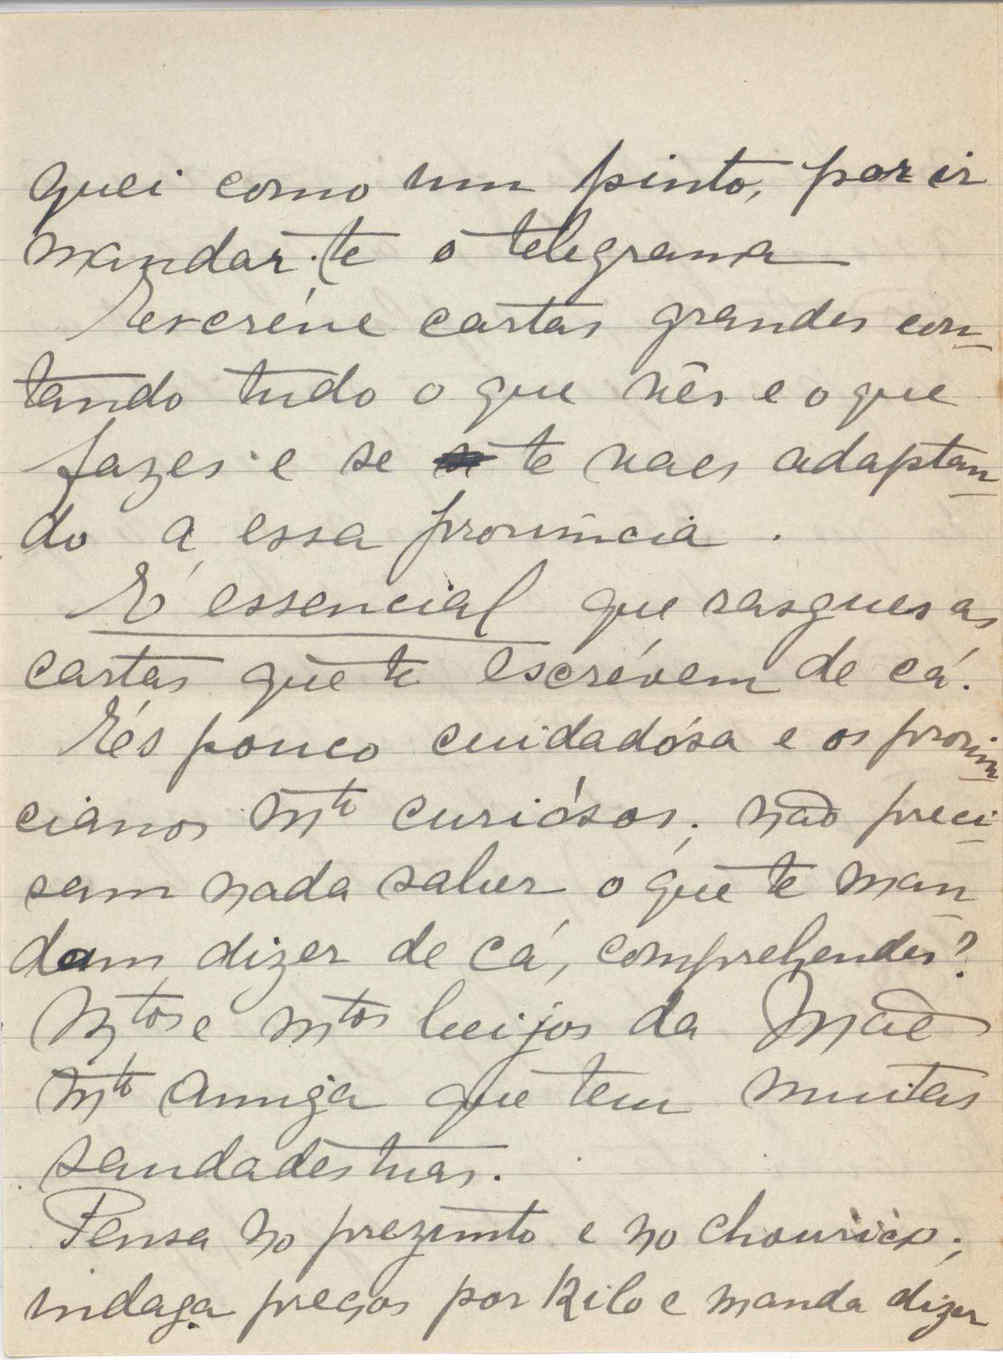 quei como um pinto, por ir
mandar-te o telegrama
Escréve cartas grandes con-
tando tudo o que vês e o que
fazes e se te vaes adaptan-
do a essa provincia.
E' essencial que rasgues as
cartas que te escrévem de cá.
És pouco cuidadósa e os provin-
cianos mto curiósos; não preci-
sam nada saber o que te man
dam dizer de cá, comprehendes?
Mtos e mtos beijos da Mãe
mto amiga que tem muitas
saudades tuas.
Pensa no prezunto e no chouriço;
indaga preços por kilo e manda dizer